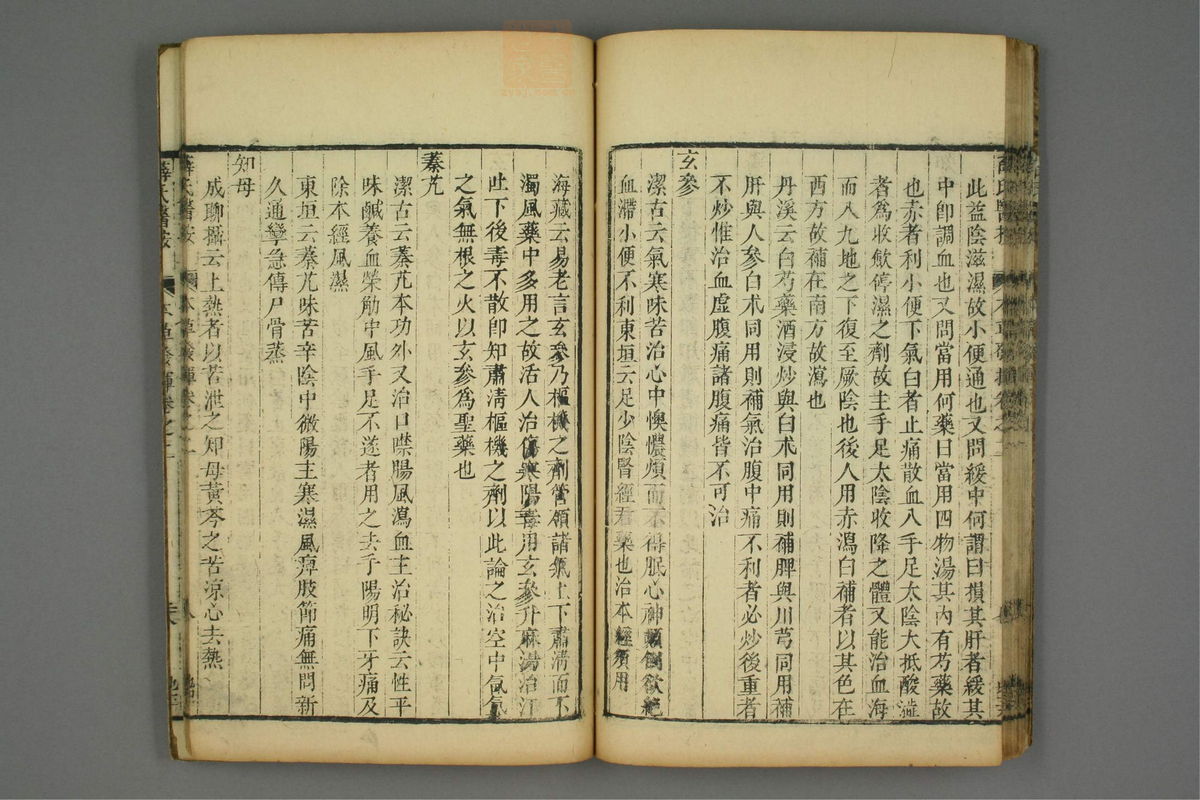 此益陰滋濕故小便通也又問緩中何謂曰損其肝者緩其
中即調血也又問當用何藥曰當用四物湯其內有芍藥故
也赤者利小便下氣白者止痛散血入手足太陰大抵酸澁
者為收斂停濕之劑故主手足太陰收降之體又能治血海
而入九地之下復至厥陰也後人用赤瀉白補者以其色在
西方故補在南方故瀉也
丹溪云白芍藥酒浸炒與白朮同用則補脾與川芎同用補
肝與人參白朮同用則補氣治腹中痛不利者必炒後重者
不炒惟治血虛腹痛諸腹痛皆不可治
玄參
潔古云氣寒味苦治心中懊憹煩而不得眠心神顛倒欲絕
血滯小便不利東垣云足少陰腎經君藥也治本經須用
海藏云易老言玄參乃樞機之劑管領諸氣上下肅清而不
濁風藥中多用之故活人治傷寒陽毒用玄參升麻湯治汗
吐下後毒不散即知肅清樞機之劑以此論之治空中氤氳
之氣無根之火以玄參為聖藥也
秦艽
潔古云秦艽本功外又治口噤腸風瀉血主治秘訣云性平
味鹹養血榮筋中風手足不遂者用之去手陽明下牙痛及
除本經風濕
東垣云秦艽味苦辛陰中微陽主寒濕風痺肢節痛無問新
久通攣急傳尸骨蒸
知母
成聊攝云上熱者以苦泄之知母黃芩之苦涼心去熱
薛氏醫按 本草發揮卷之二